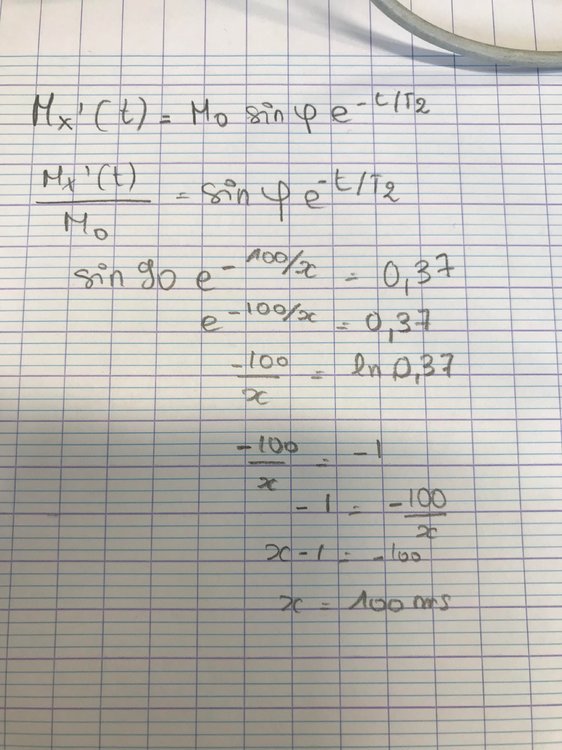 Mx'(t) = M0 sin φ e^-t/T2
Mx'(t)/M0 = sin φ e^-t/T2
sin 90 e^-100/x = 0,37
e^-100/x = 0,37
-100/x = ln 0,37
-100/x = -1
-1 = -100/x
x-1 = -100
x = 100 ms